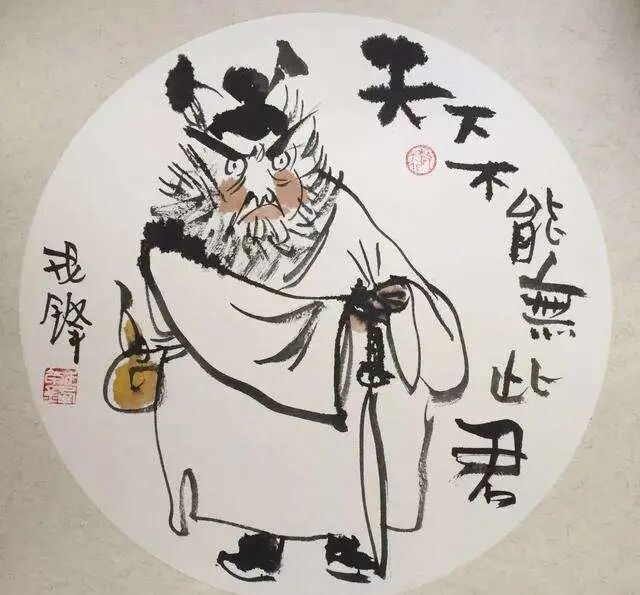 天下不能無此君
戎鋒